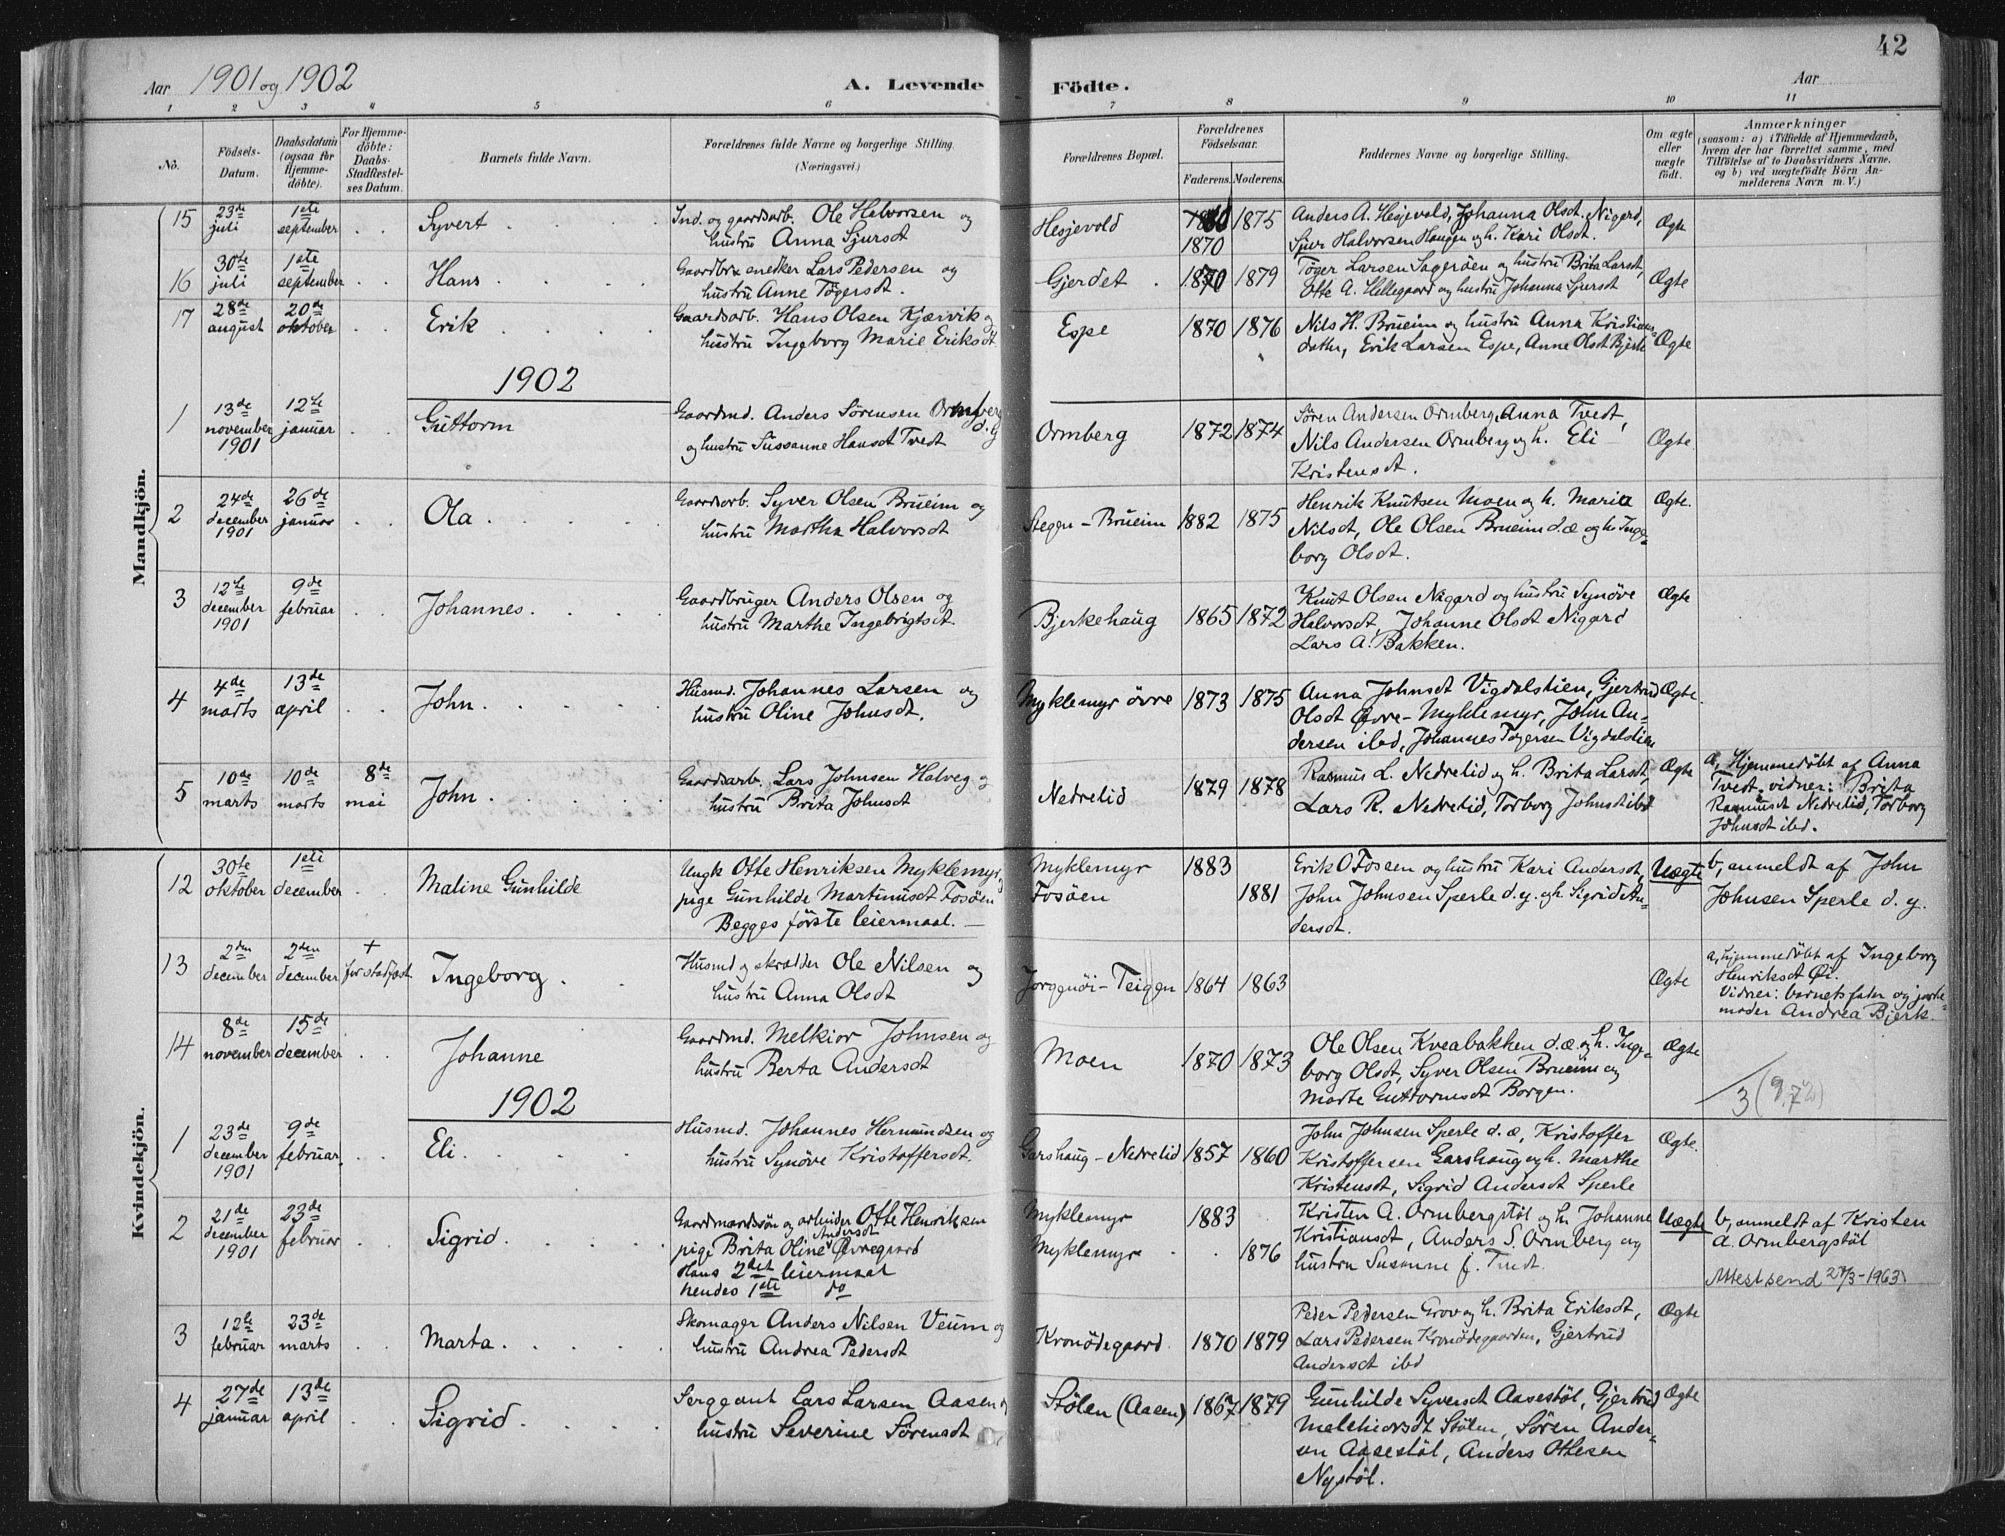 42
Aar 1901 og 1902
A. Levende Födte.
Aar
1 2 3 4 5 6 7 8 9 10 11
No.
Födsels-Datum.
Daabsdatum (ogsaa for Hjemmedöbte).
For Hjemmedöbte: Daabs-Stadfæstelses Datum.
Barnets fulde Navn.
Forældrenes fulde Navne og borgerlige Stilling. (Næringsvei.)
Forældrenes Bopæl.
Forældrenes Födselsaar.
Faderens. Moderens.
Faddernes Navne og borgerlige Stilling.
Om ægte eller uægte födt.
Anmærkninger
(saasom: a) i Tilfælde af Hjemmedaab, hvem der har forrettet samme, med Tilföielse af to Daabsvidners Navne, og b) ved uægtefödte Börn Anmelderens Navn m. V.)
Mandkjön.
15 23de juli 1ste september Syvert
Ind. og gaardsarb. Ole Halvorsen og
hustru Anna Sjursdt
Hesjevold 1870 1875
Anders A. Hesjevold, Johanna Olsdt. Nigard,
Sjur Halvorsen Haugen og h. Kari Olsdt.
Ægte
16 30te juli 1ste september Hans
Gaardbr. snedker Lars Pedersen og
hustru Anne Tögersdt.
Gjerdet 1870 1879
Töger Larsen Sageröen og hustru Brita Larsdt,
Otte A. Hellegaard og hustru Johanna Sjursdt
Ægte
17 28de august 20de oktober Erik
Gaardsarb. Hans Olsen Kjærvik og
hustru Ingeborg Marie Eriksdt
Espe 1870 1876
Nils H. Brueim og hustru Anna Kristians-
datter, Erik Larsen Espe, Anne Olsdt Bjerk
Ægte
1902
1 13de november 1901 12te januar Guttorm
Gaardmd. Anders Sörensen Ormberg d. y.
og hustru Sussanne Hansdt Tvedt
Ormberg 1872 1874
Sören Andersen Ormberg, Anna Tvedt,
Nils Andersen Ormberg og h. Eli
Kristensdt.
Ægte
2 24de december 1901 26de januar Ola
Gaardsarb. Syver Olsen Brueim og
hustru Martha Halvorsdt
Stegen-Brueim 1882 1875
Henrik Knutsen Moen og h. Maria
Nilsdt, Ole Olsen Brueim d.æ og h. Inge-
borg Olsdt.
Ægte.
3 12te december 1901 9de februar Johannes
Gaardbruger Anders Olsen og
hustru Marthe Ingebrigtsdt
Bjerkehaug 1865 1872
Knut Olsen Nigard og hustru Synöve
Halvorsdt, Johanne Olsdt Nigard
Lars A. Bakken.
Ægte
4 4de marts 13de april John
Husmd. Johannes Larsen og
hustru Oline Johnsdt.
Myklemyr övre 1873 1875
Anna Johnsdt Vigdalstien, Gjertrud
Olsdt Övre-Myklemyr, John An-
dersen ibd, Johannes Tögersen Vigdalstien
Ægte
5 10de marts 10de marts 8de mai John
Gaardsarb. Lars Johnsen Halveg og
hustru Brita Johnsdt
Nedrelid 1879 1878
Rasmus L. Nedrelid og h. Brita Larsdt,
Lars R. Nedrelid, Torborg Johnsdt ibd
Ægte
a, Hjemmedöbt af Anna
Tvedt. vidner: Brita
Rasmusdt Nedrelid, Torborg
Johnsdt ibd.
Kvindekjön.
12 30te oktober 1ste december Maline Gunhilde
Ungk Otte Henriksen Myklemyr og
pige Gunhilde Martinusdt Fosöen
Begges förste leiermaal.
Myklemyr 1883
Fosöen 1881
Erik O Fossen og hustru Kari Andersdt,
John Johnsen Sperle d. y. og h. Sigrid An-
dersdt.
Uægte
b, anmeldt af John
Johnsen Sperle d. y.
13 2den december 2den december + för stadfæst. Ingeborg
Husmd og skrædder Ole Nilsen og
hustru Anna Olsdt
Jorgenöi-Teigen 1864 1863
Ægte
a, hjemmedöbt af Ingeborg
Henriksdt Öi.
Vidner: barnets fater og jorde-
moder Andrea Bjerk.
14 8de november 15de december Johanne
Gaardmd. Melkior Johnsen og
hustru Berta Andersdt
Moen 1870 1873
Ole Olsen Kveabakken d.æ og h. Inge-
borg Olsdt, Syver Olsen Brueim og
Marte Guttormsdt Borgen.
Ægte
3 (9.72)
1902
1 23de december 1901 9de februar Eli
Husmd. Johannes Hermundsen og
hustru Synöve Kristoffersdt.
Garshaug-Nedrelid 1857 1860
John Johnsen Sperle d.æ, Kristoffer
Kristoffersen Garshaug og h. Marthe
Kristensdt, Sigrid Andersdt Sperle
Ægte.
2 21de december 1901 23de februar Sigrid
Gaardmandssön og arbeider Otte Henriksen
pige Brita Oline Andersdt Övregaard
Hans 2det leiermaal
hendes 1ste do
Myklemyr 1883
Myklemyr 1876
Kristen A. Ormbergstöl og h. Johanne
Kristiansdt, Anders S. Ormberg og
hustru Susanne f. Tvedt.
Uægte
b, anmeldt af Kristen
A. Ormbergstöl
Attest send 27/3-1963
3 12te februar 23de marts Marta
Skomager Anders Nilsen Veum og
hustru Andrea Pedersdt
Kronödegaard 1870 1879
Peder Pedersen Grov og h. Brita Eriksdt,
Lars Pedersen Kronödegaarden, Gjertrud
Andersdt ibd
Ægte
4 27de januar 13de april Sigrid
Sergeant Lars Larsen Aasen og
hustru Severine Sörensdt
Stölen (Aasen) 1867 1879
Gunhilde Syversdt Aasestöl, Gjertrud
Melchiorsdt Stölen, Sören Ander-
sen Aasestöl, Anders Ottesen
Nystöl.
Ægte